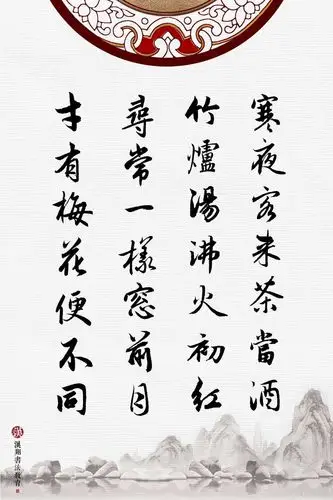 寒夜客来茶當酒
竹爐湯沸火初紅
尋常一樣窓前月
才有梅花便不同
漢翔書法教育